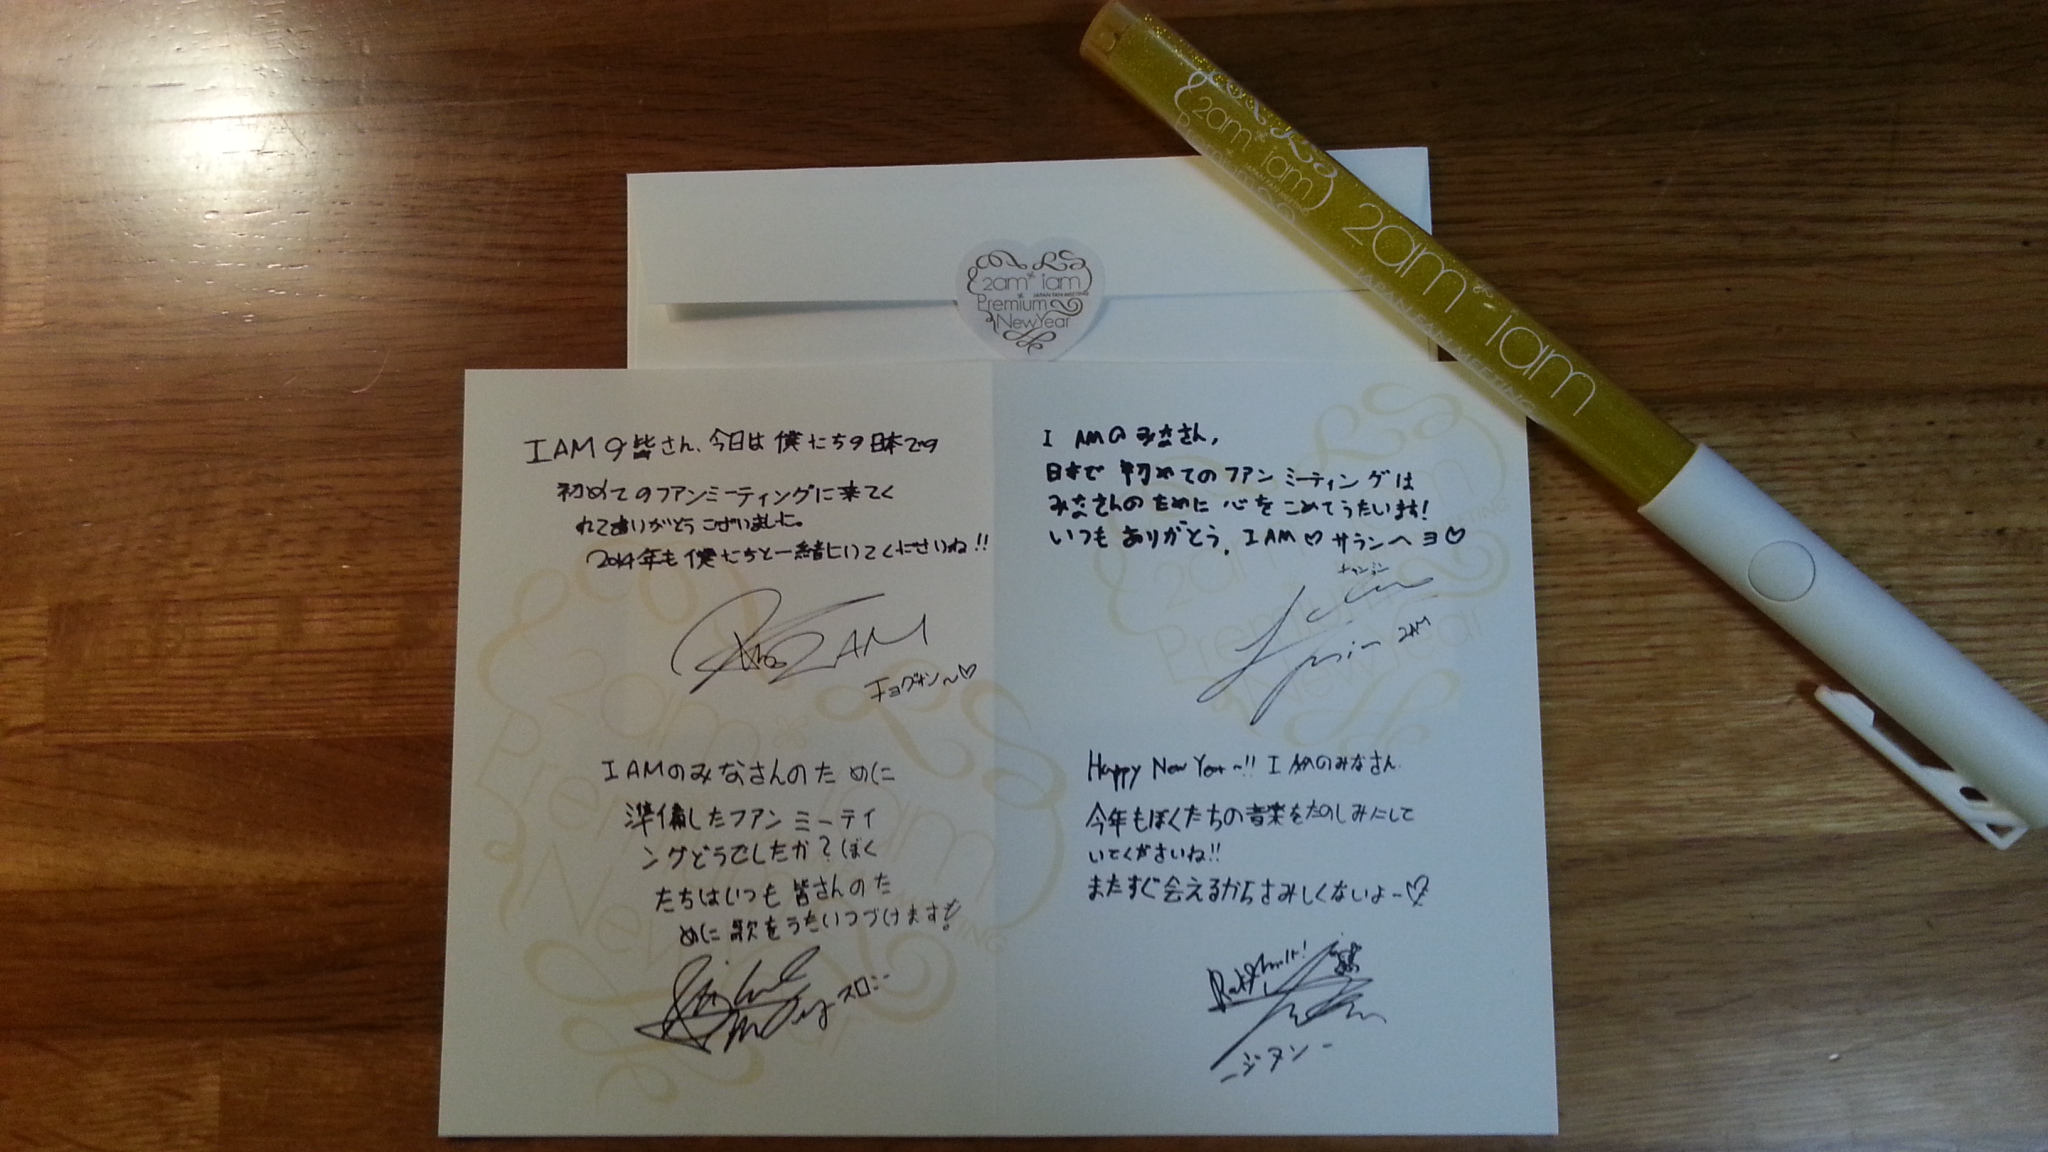 2am* iam
Premium
JAPAN FAN MEETING
NewYear
2am*iam
Premium
JAPAN FAN MEETING
2am*iam
JAPAN FAN MEETING
I AMの皆さん、今日は僕たちの日本での
初めてのファンミーティングに来てく
れてありがとうございました。
2014年も僕たちと一緒にいてくださいね!!
2AM
チョグォン〜♡
I AMのみなさん,
日本で初めてのファンミーティングは
みなさんのために心をこめてうたいます!
いつもありがとう. I AM♡サランヘヨ♡
チャンミン
2AM
I AMのみなさんのために
準備したファンミーティ
ングどうでしたか?ぼく
たちはいつも皆さんのた
めに歌をうたいつづけます!
スロン
Happy New Year~!! I AMのみなさん
今年もぼくたちの音楽をたのしみにして
いてくださいね!!
またすぐ会えるからさみしくないよ~♡
-ジヌン-
2am*iam
Premium
NewYear
JAPAN FAN MEETING
2am*iam
Premium
NewYear